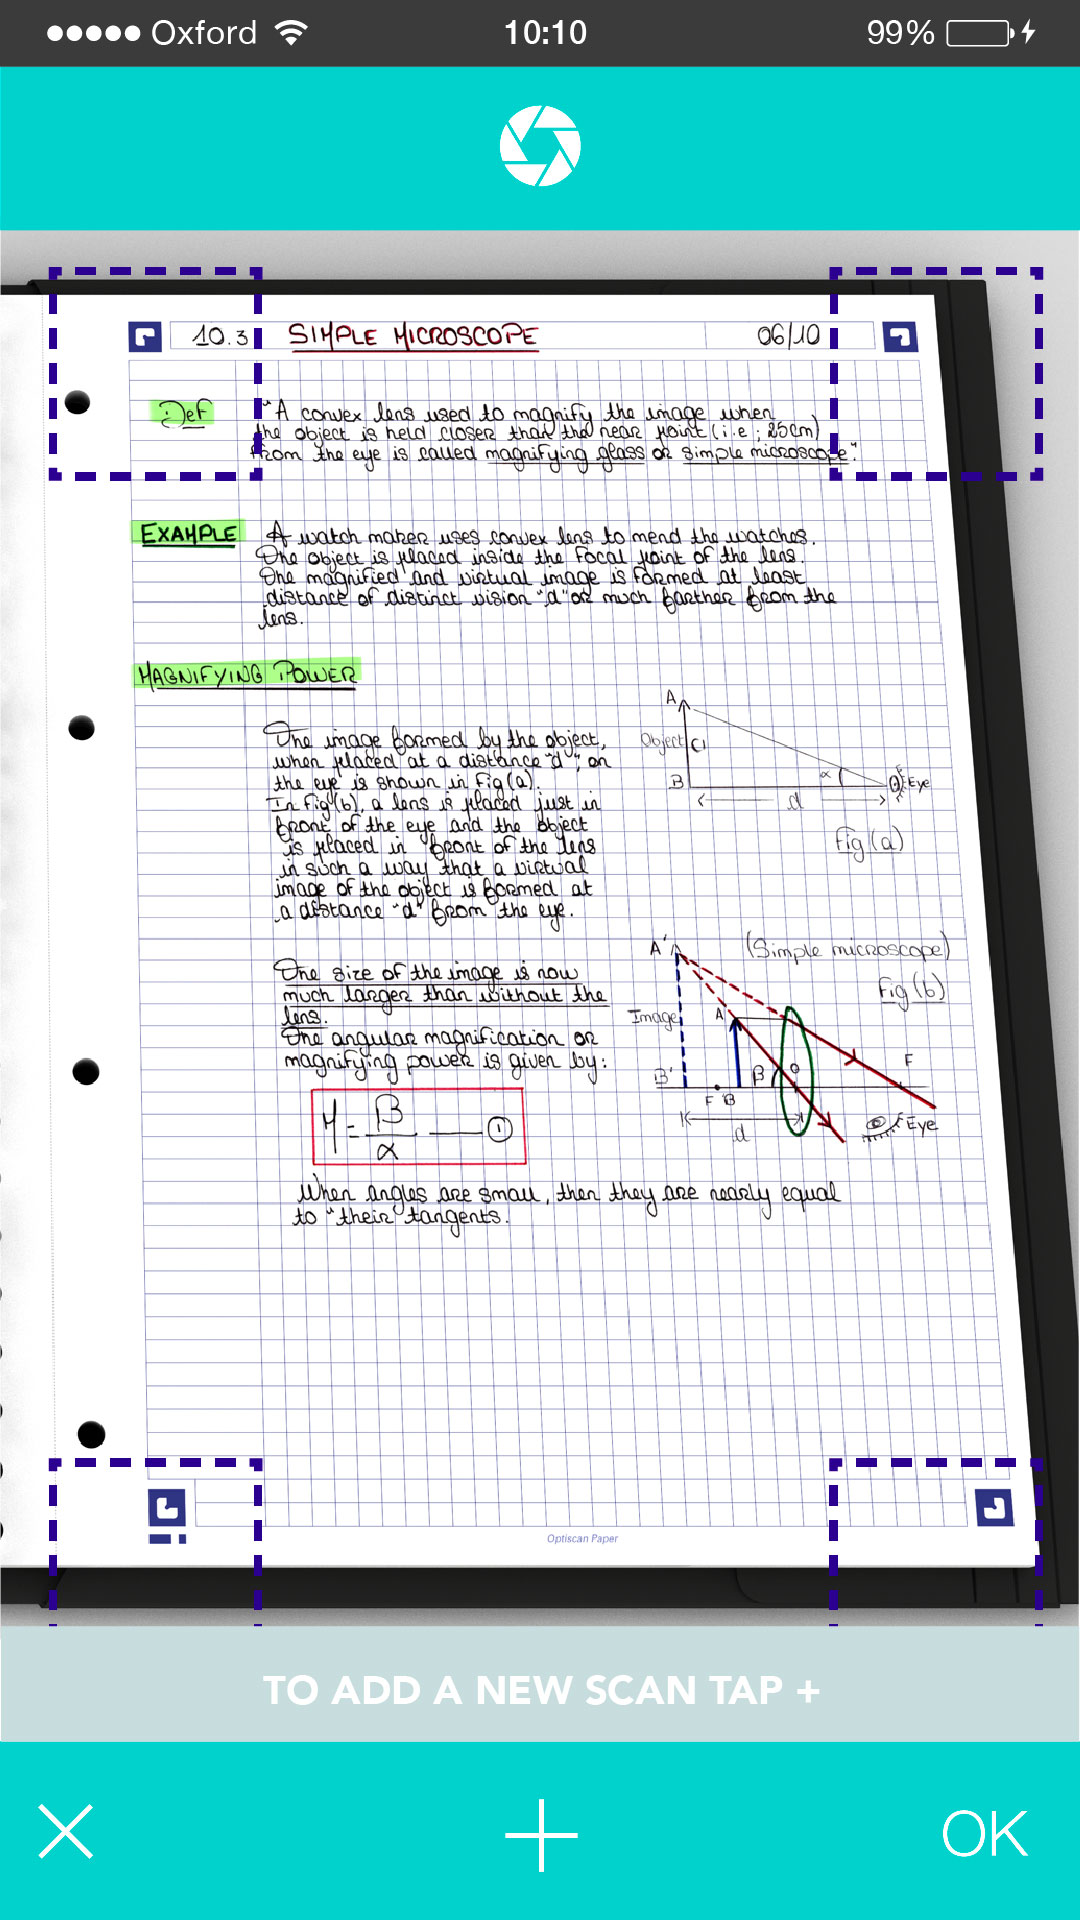 Oxford 10:10 99%
10.3 SIMPLE MICROSCOPE 06/10
Def "A convex lens used to magnify the image when
the object is held closer than the near point (i.e ; 25cm)
from the eye is called magnifying glass or simple microscope."
EXAMPLE A watch maker uses convex lens to mend the watches.
The object is placed inside the focal point of the lens.
The magnified and virtual image is formed at least
distance of distinct vision "d" or much farther from the
lens.
MAGNIFYING POWER
The image formed by the object,
when placed at a distance "d", on
the eye is shown in Fig(a).
In Fig(b), a lens is placed just in
front of the eye and the object
is placed in front of the lens
in such a way that a virtual
image of the object is formed at
a distance "d" from the eye.
A
Object
B
α
Eye
d
Fig(a)
The size of the image is now
much larger than without the
lens.
The angular magnification or
magnifying power is given by:
M = β/α — ①
A' (Simple microscope)
Fig(b)
Image A
B' F B β O F
d
Eye
When angles are small, then they are nearly equal
to "their tangents.
Optiscan Paper
TO ADD A NEW SCAN TAP +
OK